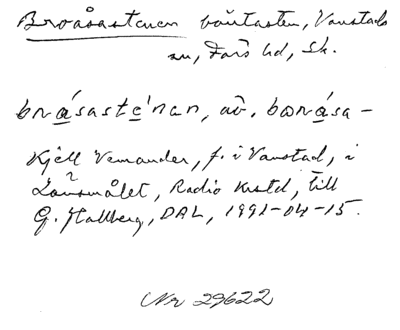 Broåsastenen bautasten, Vanstads
sn, Färs hd, Sk.
bråsaste'nan, äv. boråsa-
Kjell Vemander, f. i Vanstad, i
Länsmålet, Radio Krstd, till
G. Hallberg, DAL, 1991-04-15.
Nr 29622